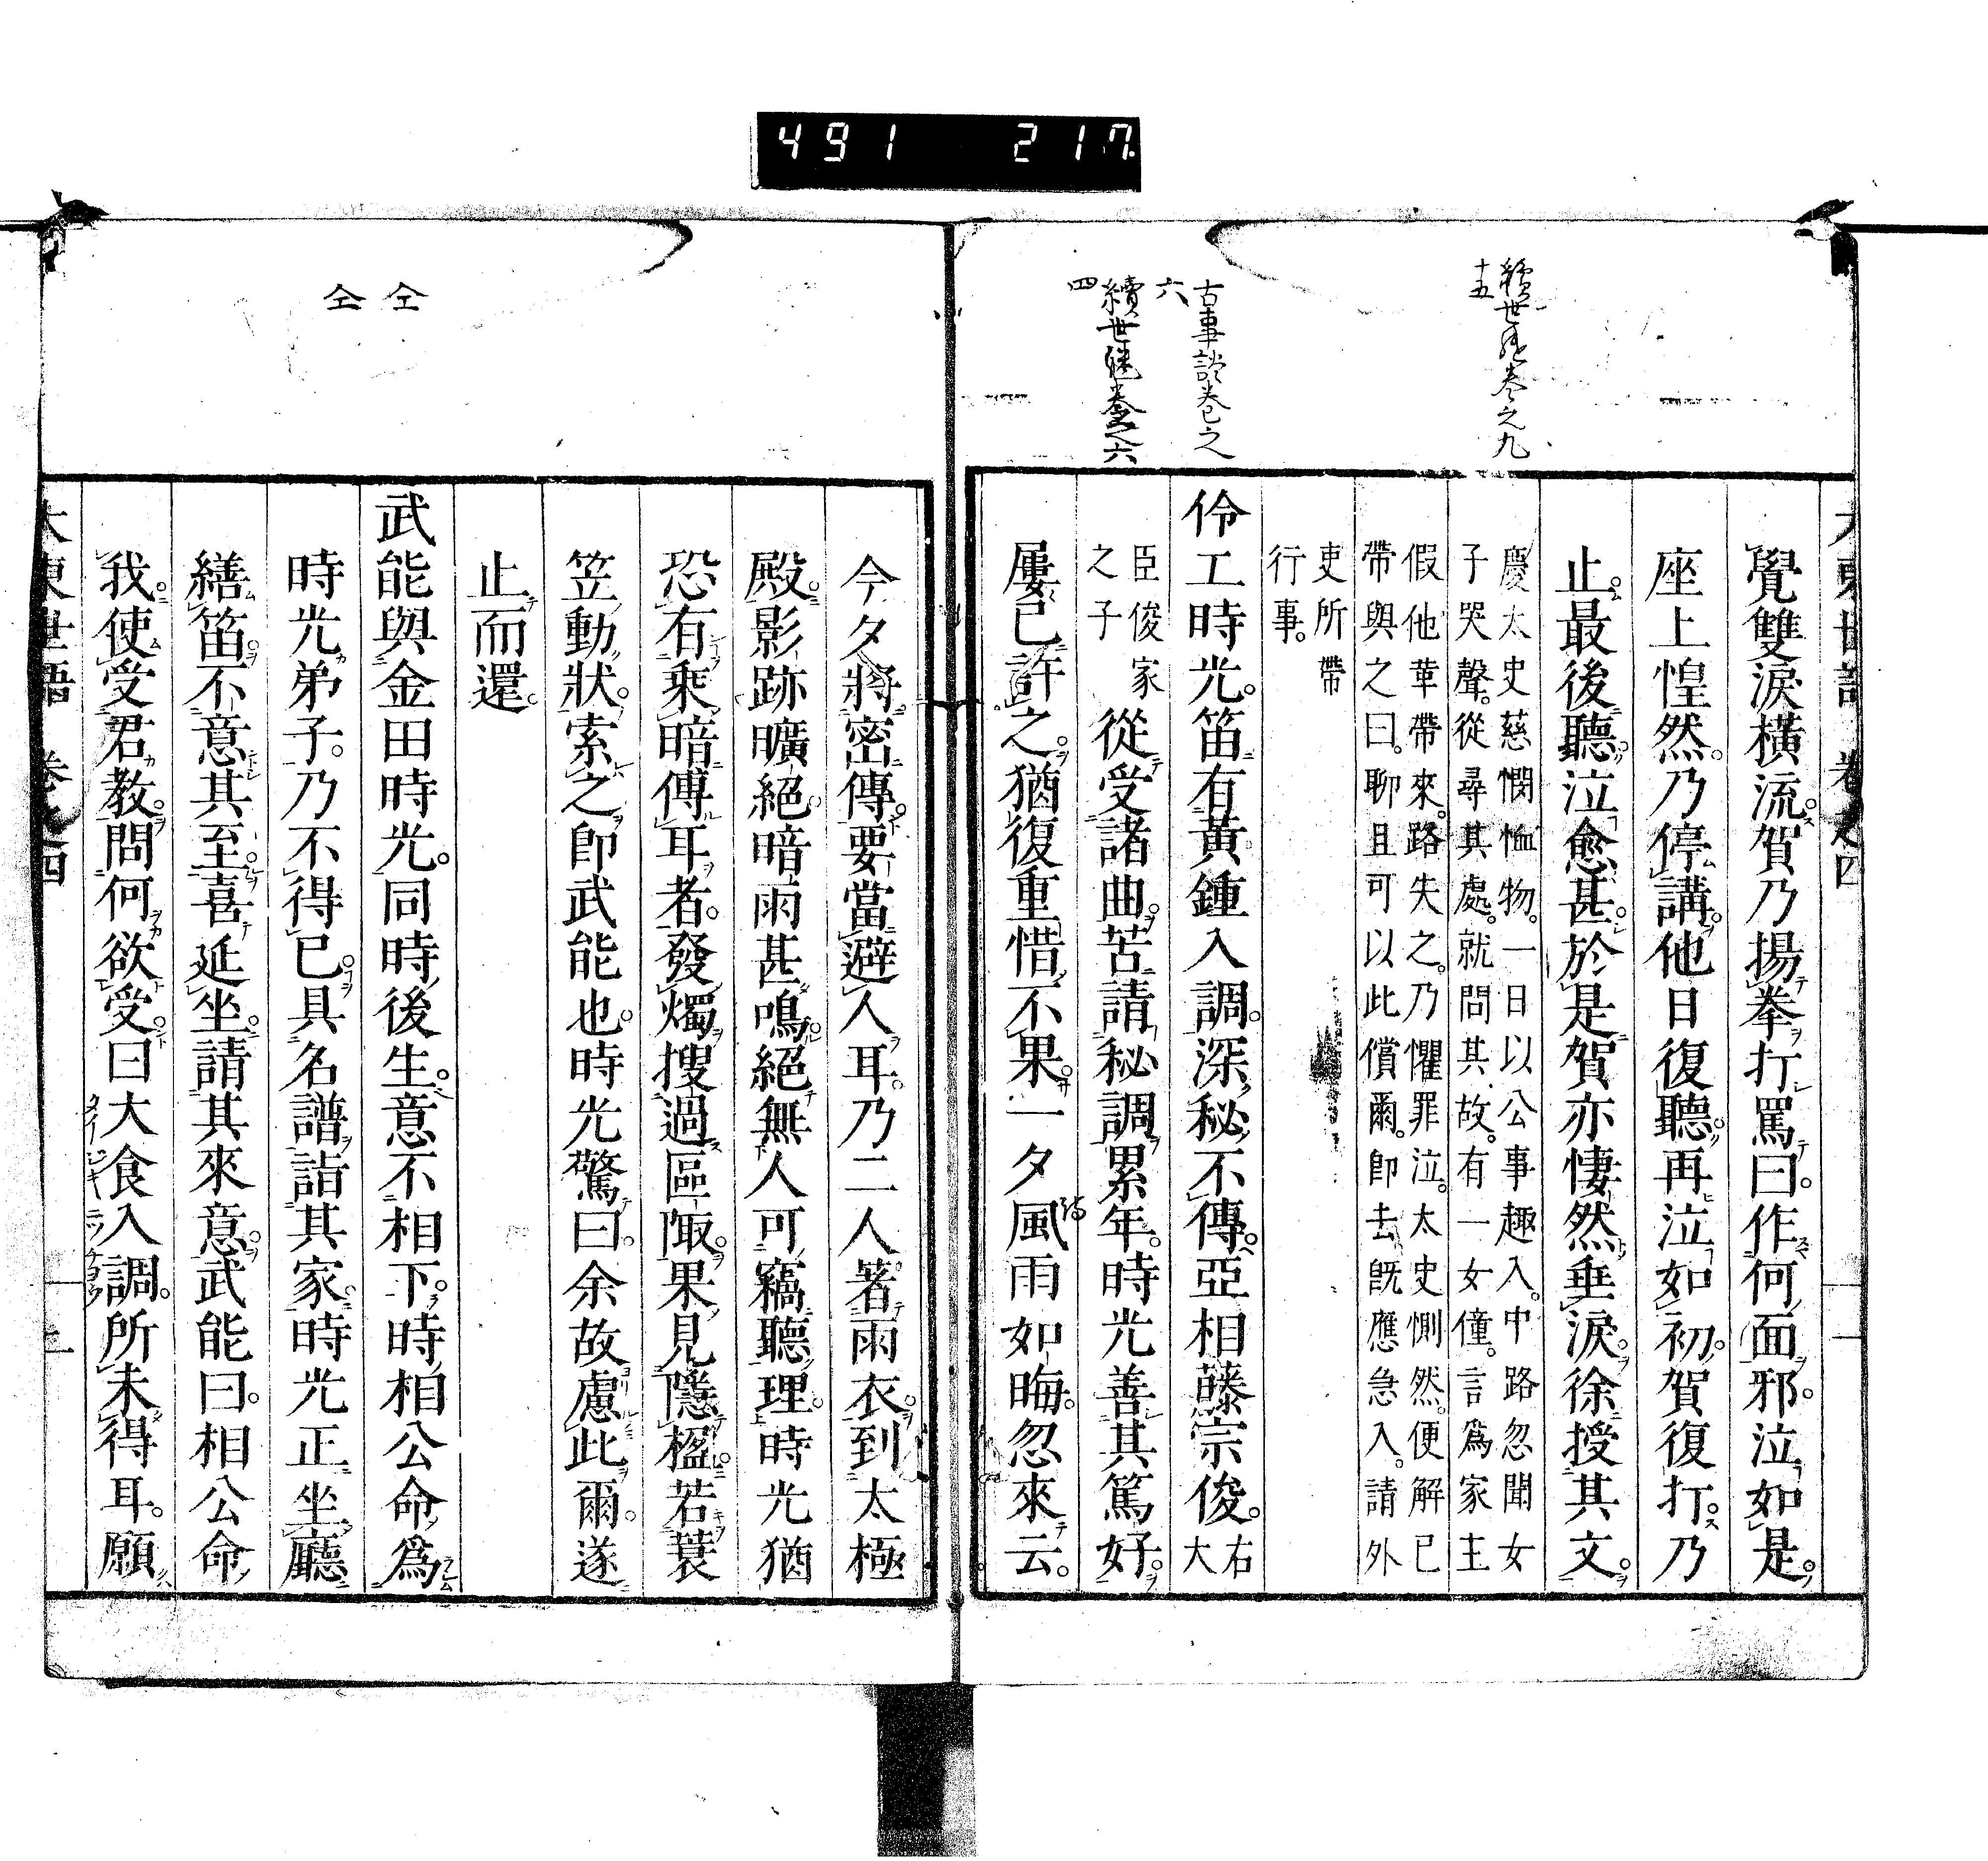 491 217
續世繼卷之九
十五
古事談卷之
六
續世繼卷之六
四
仝
仝
大東世語 卷之四
覺雙淚橫流。賀乃揚拳打罵曰。作何面邪。泣如是。
座上惶然。乃停講。他日復聽。再泣如初。賀復打。乃
止。最後聽泣愈甚於是。賀亦悽然垂淚。徐授其文。
慶太史慈憫恤物。一日以公事趣入。中路忽聞女
子哭聲。從尋其處。就問其故。有一女僮。言爲家主
假他革帶來。路失之。乃懼罪泣。太史惻然。便解已
帶與之曰。聊且可以此償爾。卽去。旣應急入。請外
吏所帶
行事。
伶工時光。笛有黃鍾入調。深秘不傳。亞相藤宗俊。右大
臣俊家
之子
從受諸曲。苦請秘調累年。時光善其篤好。
屢已許之。猶復重惜不果。一夕風雨如晦。忽來云。
今夕將密傳。要當避人耳。乃二人著雨衣。到太極
殿。影跡曠絕。暗雨甚鳴。絕無人可竊聽理。時光猶
恐有乘暗傅耳者。發燭搜過區陬。果見隱楹若蓑
笠動狀。索之卽武能也。時光驚曰。余故慮此爾。遂
止而還。
武能與金田時光。同時後生。意不相下。時相公命爲
時光弟子。乃不得已。具名譜詣其家。時光正坐廳
繕笛。不意其至。喜延坐。請其來意。武能曰。相公命
我。使受君教。問何欲受。曰大食入調。所未得耳。願
タイシキニツチヨウ
大東世語 卷之四